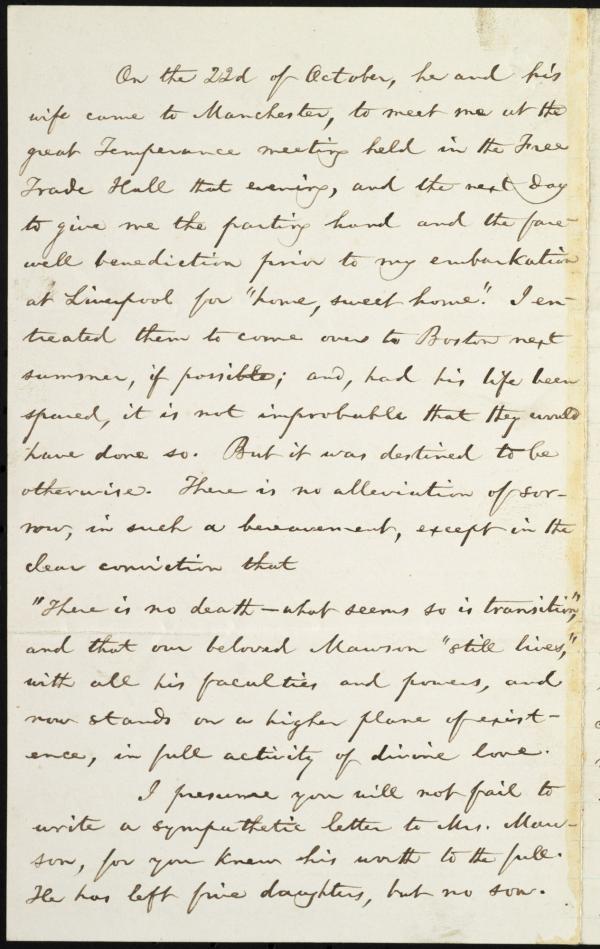 On the 22d of October, he and his
wife came to Manchester, to meet me at the
great Temperance meeting held in the Free
Trade Hall that evening, and the next day
to give me the parting hand and the fare-
well benediction prior to my embarkation
at Liverpool for "home, sweet home". I en-
treated them to come over to Boston next
summer, if possible; and, had his life been
spared, it is not improbable that they would
have done so. But it was destined to be
otherwise. There is no alleviation of sor-
row, in such a bereavement, except in the
clear conviction that
"There is no death—what seems so is transition",
and that our beloved Mawson "still lives,"
with all his faculties and powers, and
now stands on a higher plane of exist-
ence, in full activity of divine love.
I presume you will not fail to
write a sympathetic letter to Mrs. Maw-
son, for you knew his worth to the full.
He has left five daughters, but no son.